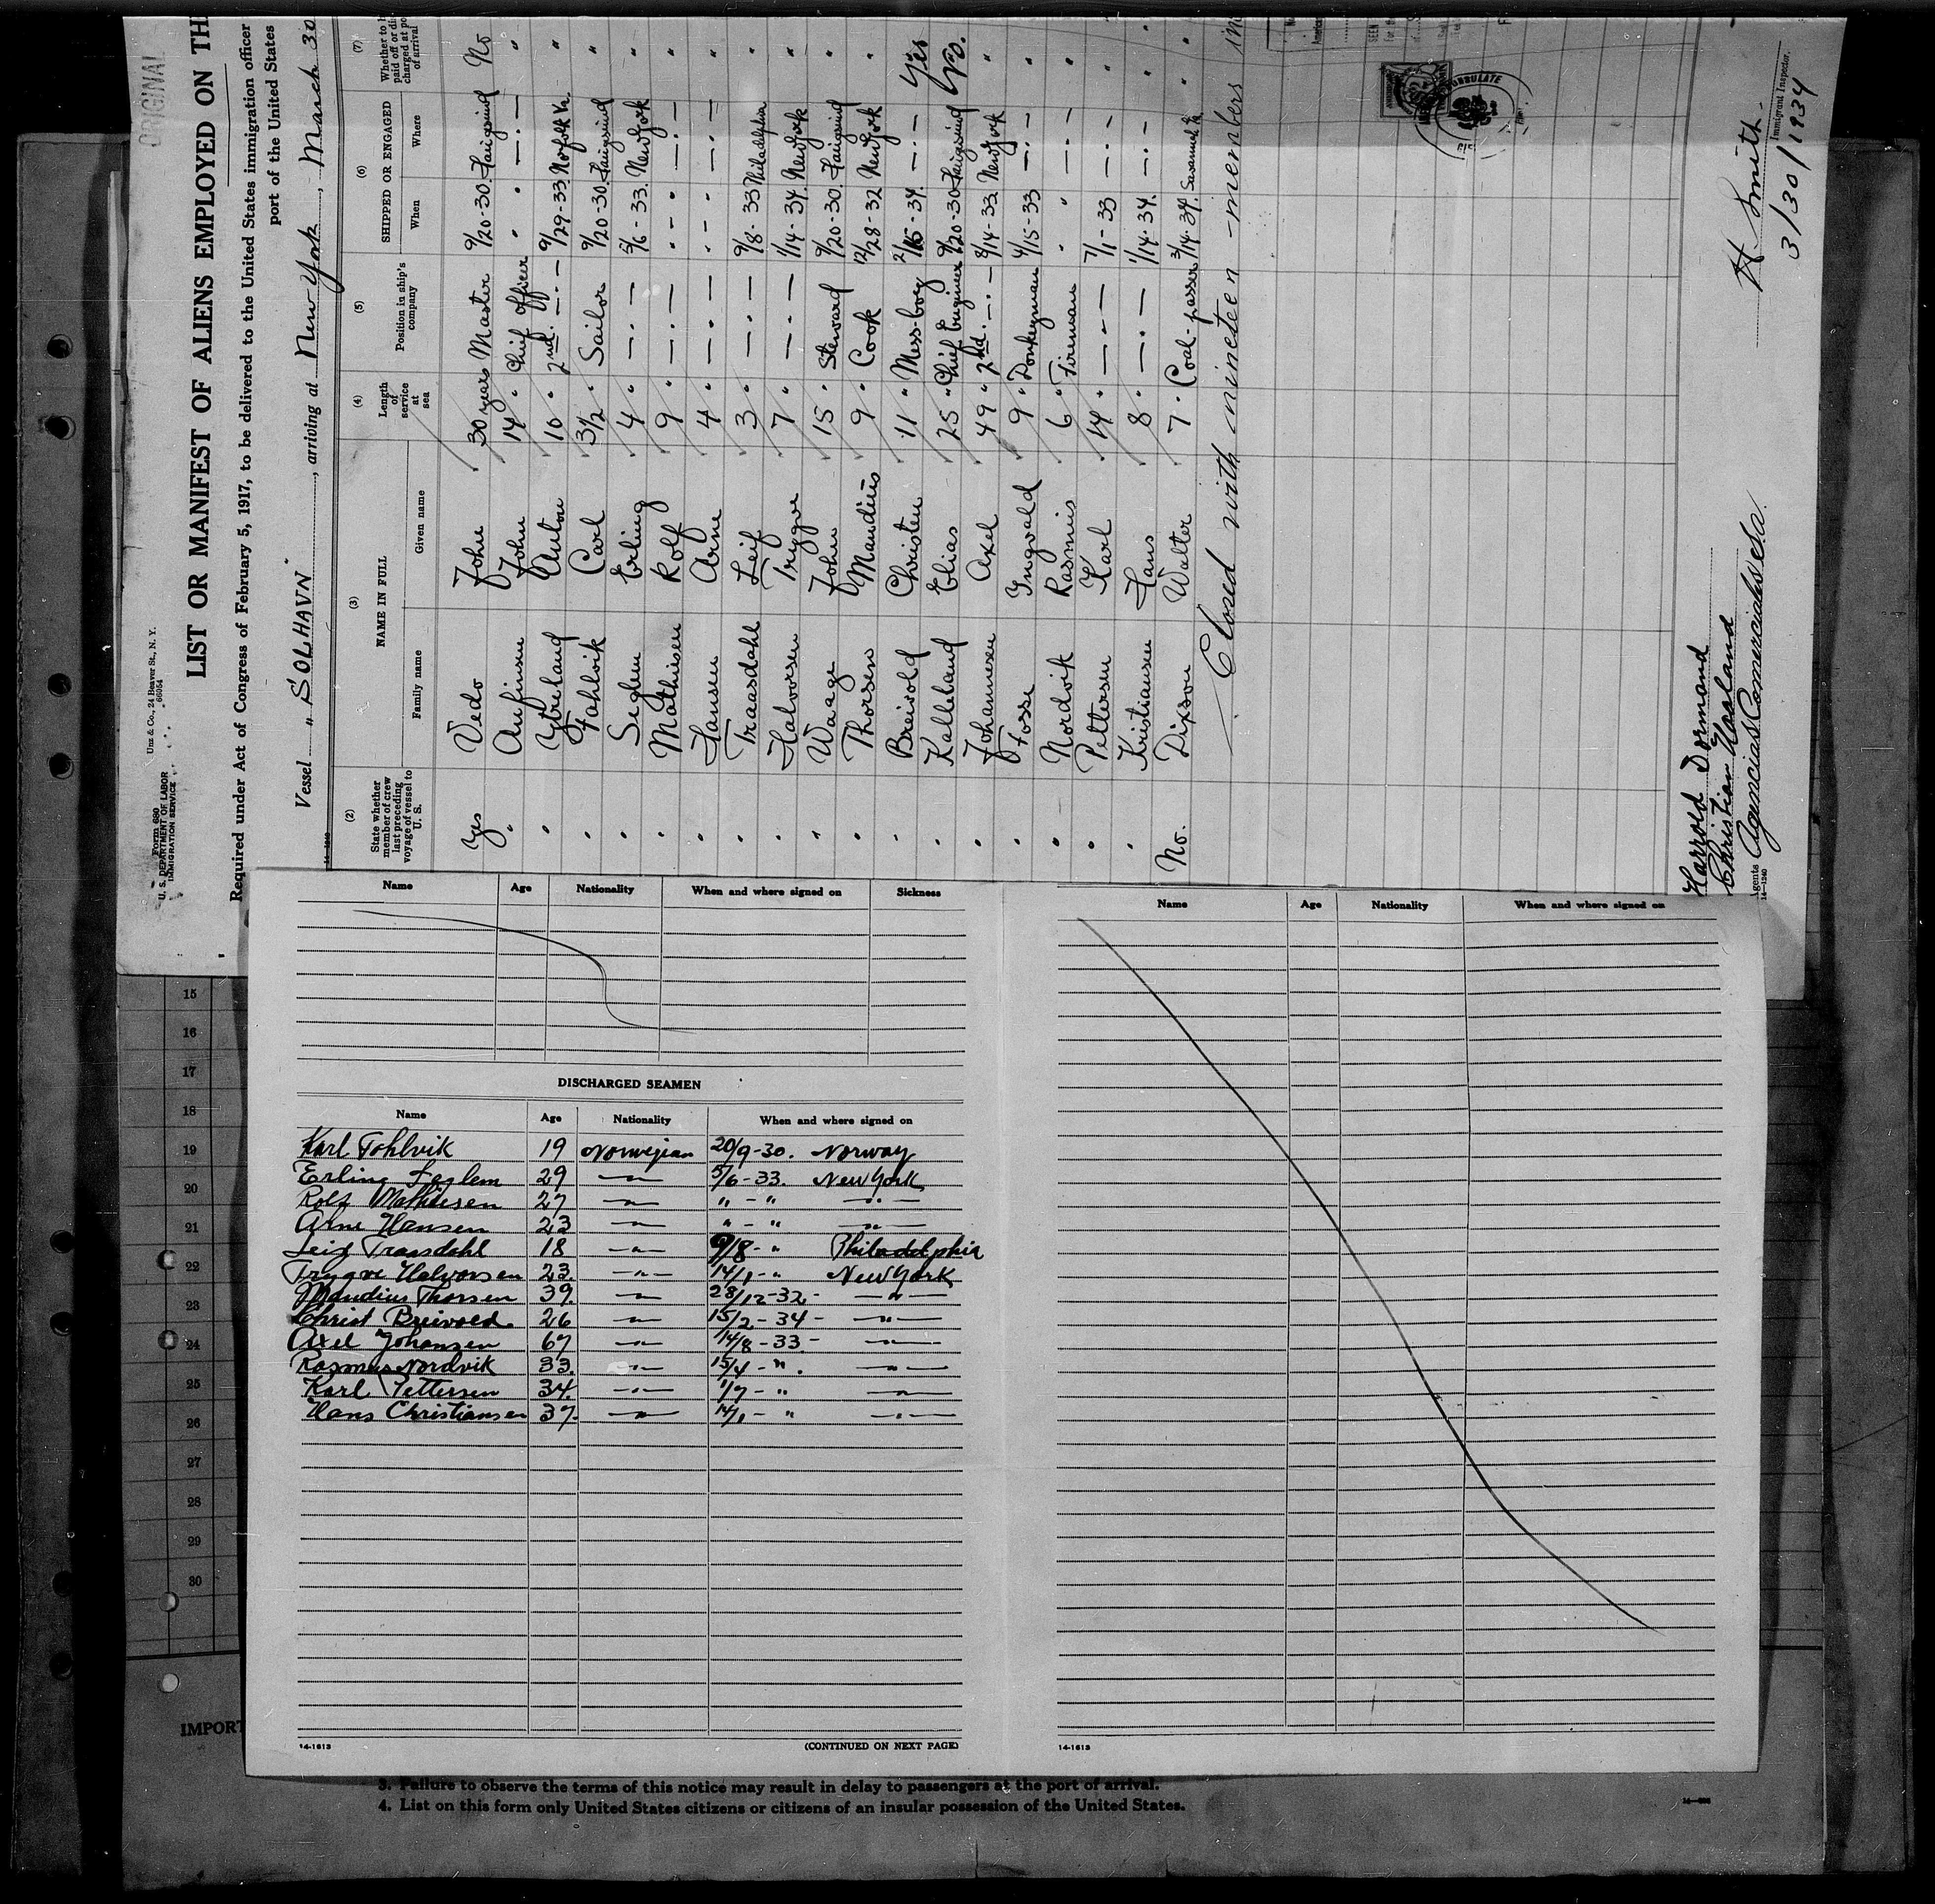 ORIGINAL
Form 680
U. S. DEPARTMENT OF LABOR
IMMIGRATION SERVICE
Unz & Co., 24 Beaver St., N. Y.
66054
LIST OR MANIFEST OF ALIENS EMPLOYED ON TH
Required under Act of Congress of February 5, 1917, to be delivered to the United States immigration officer
port of the United States
Vessel "SOLHAVN", arriving at New York, March 30
(2) (3) (4) (5) (6) (7)
State whether member of crew last preceding voyage of vessel to U. S. NAME IN FULL Length of service at sea Position in ship's company SHIPPED OR ENGAGED Whether to b paid off or di charged at po of arrival
Family name Given name When Where
Yes Vedo John 30 years Master 9/20-30. Haugesund No
" Anfinsen John 14 " Chief officer " " "
" Ytreland Anton 10 " 2nd. —"— 9/29-33 Norfolk Va. "
" Fahlvik Carl 3½ " Sailor 9/20-30 Haugesund "
" Seglem Erling 4 " —"— 5/6-33. New York "
" Mathisen Rolf 9 " —"— " - " —"— "
" Hansen Arne 4 " —"— " - " —"— "
" Traasdahl Leif 3 " —"— 9/8-33 Philadelphia "
" Halvorsen Trygve 7 " —"— 1/14-34. New York "
" Waage John 15 " Steward 9/20-30. Haugesund "
" Thorsen Mandius 9 " Cook 12/28-32 New York "
" Breivold Christen 11 " Mess-boy 2/15-34. —"— Yes
" Kalleland Elias 25 " Chief Engineer 9/20-30 Haugesund No.
" Johannesen Axel 49 " 2nd. —"— 8/14-33 New York "
" Fosse Ingvald 9 " Donkeyman 4/15-33 —"— "
" Nordvik Rasmus 6 " Fireman " —"— "
" Pettersen Karl 14 " —"— 7/1-33 —"— "
" Kristiansen Hans 8 " —"— 1/14-34. —"— "
No. Dixson Walter 7 " Coal-passer 3/14-34. Savannah Ga "
Closed with nineteen -members in
CONSULATE
Harrold Dormand
Christian Haaland
gents Agencias Comerciales Sa.
14-1240
H. Smith
Immigrant Inspector.
3/30/1934
Name Age Nationality When and where signed on Sickness
DISCHARGED SEAMEN
Name Age Nationality When and where signed on
Karl Fohlvik 19 Norwegian 20/9-30. Norway
Erling Seglem 29 —"— 5/6-33. New York
Rolf Mathiesen 27 —"— " - " —"—
Arne Hansen 23 —"— " - " —"—
Leif Traasdahl 18 —"— 9/8- " Philadelphia
Trygve Halvorsen 23. —"— 14/1- " New York
Mandius Thorsen 39. —"— 28/12-32- —"—
Christ Breivold. 26 —"— 15/2-34- —"—
Axel Johansen 67 —"— 14/8-33- —"—
Rasmus Nordvik 33. —"— 15/4- ". —"—
Karl Pettersen 34. —"— 1/7- " —"—
Hans Christiansen 37. —"— 14/1- " —"—
14-1613 (CONTINUED ON NEXT PAGE)
Name Age Nationality When and where signed on
14-1613
15
16
17
18
19
20
21
22
23
24
25
26
27
28
29
30
IMPORT
3. Failure to observe the terms of this notice may result in delay to passengers at the port of arrival.
4. List on this form only United States citizens or citizens of an insular possession of the United States.